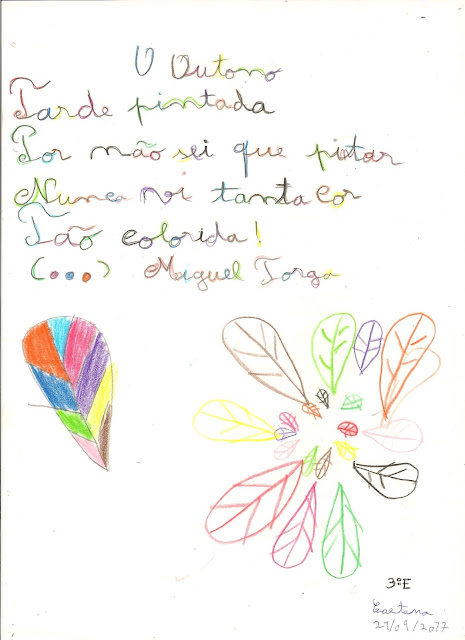 O Outono
Tarde pintada
Por não sei que pintar
Nunca vi tanta cor
Tão colorida!
(...) Miguel Torga
3ºE
Caetana